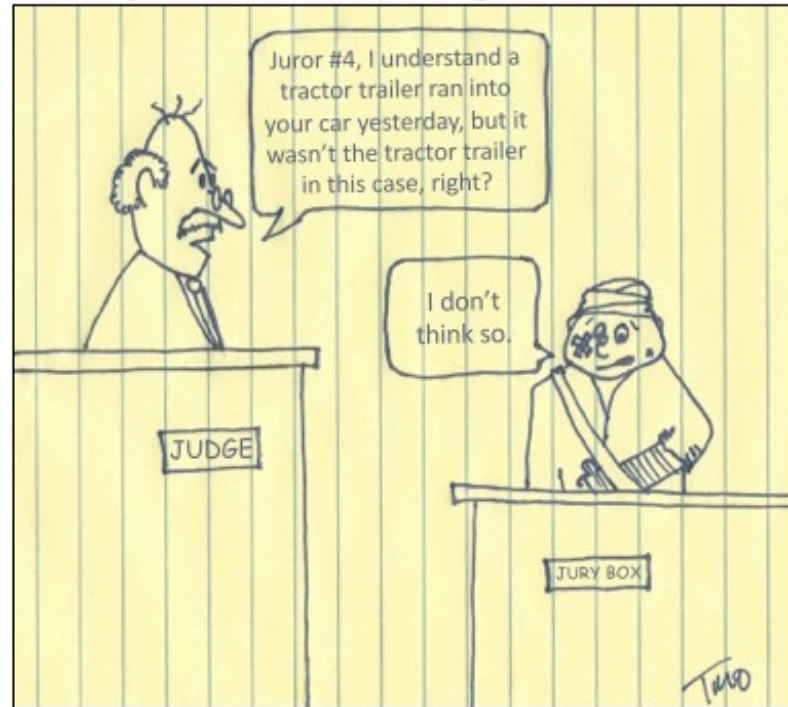 Juror #4, I understand a
tractor trailer ran into
your car yesterday, but it
wasn't the tractor trailer
in this case, right?
I don't
think so.
JUDGE
JURY BOX